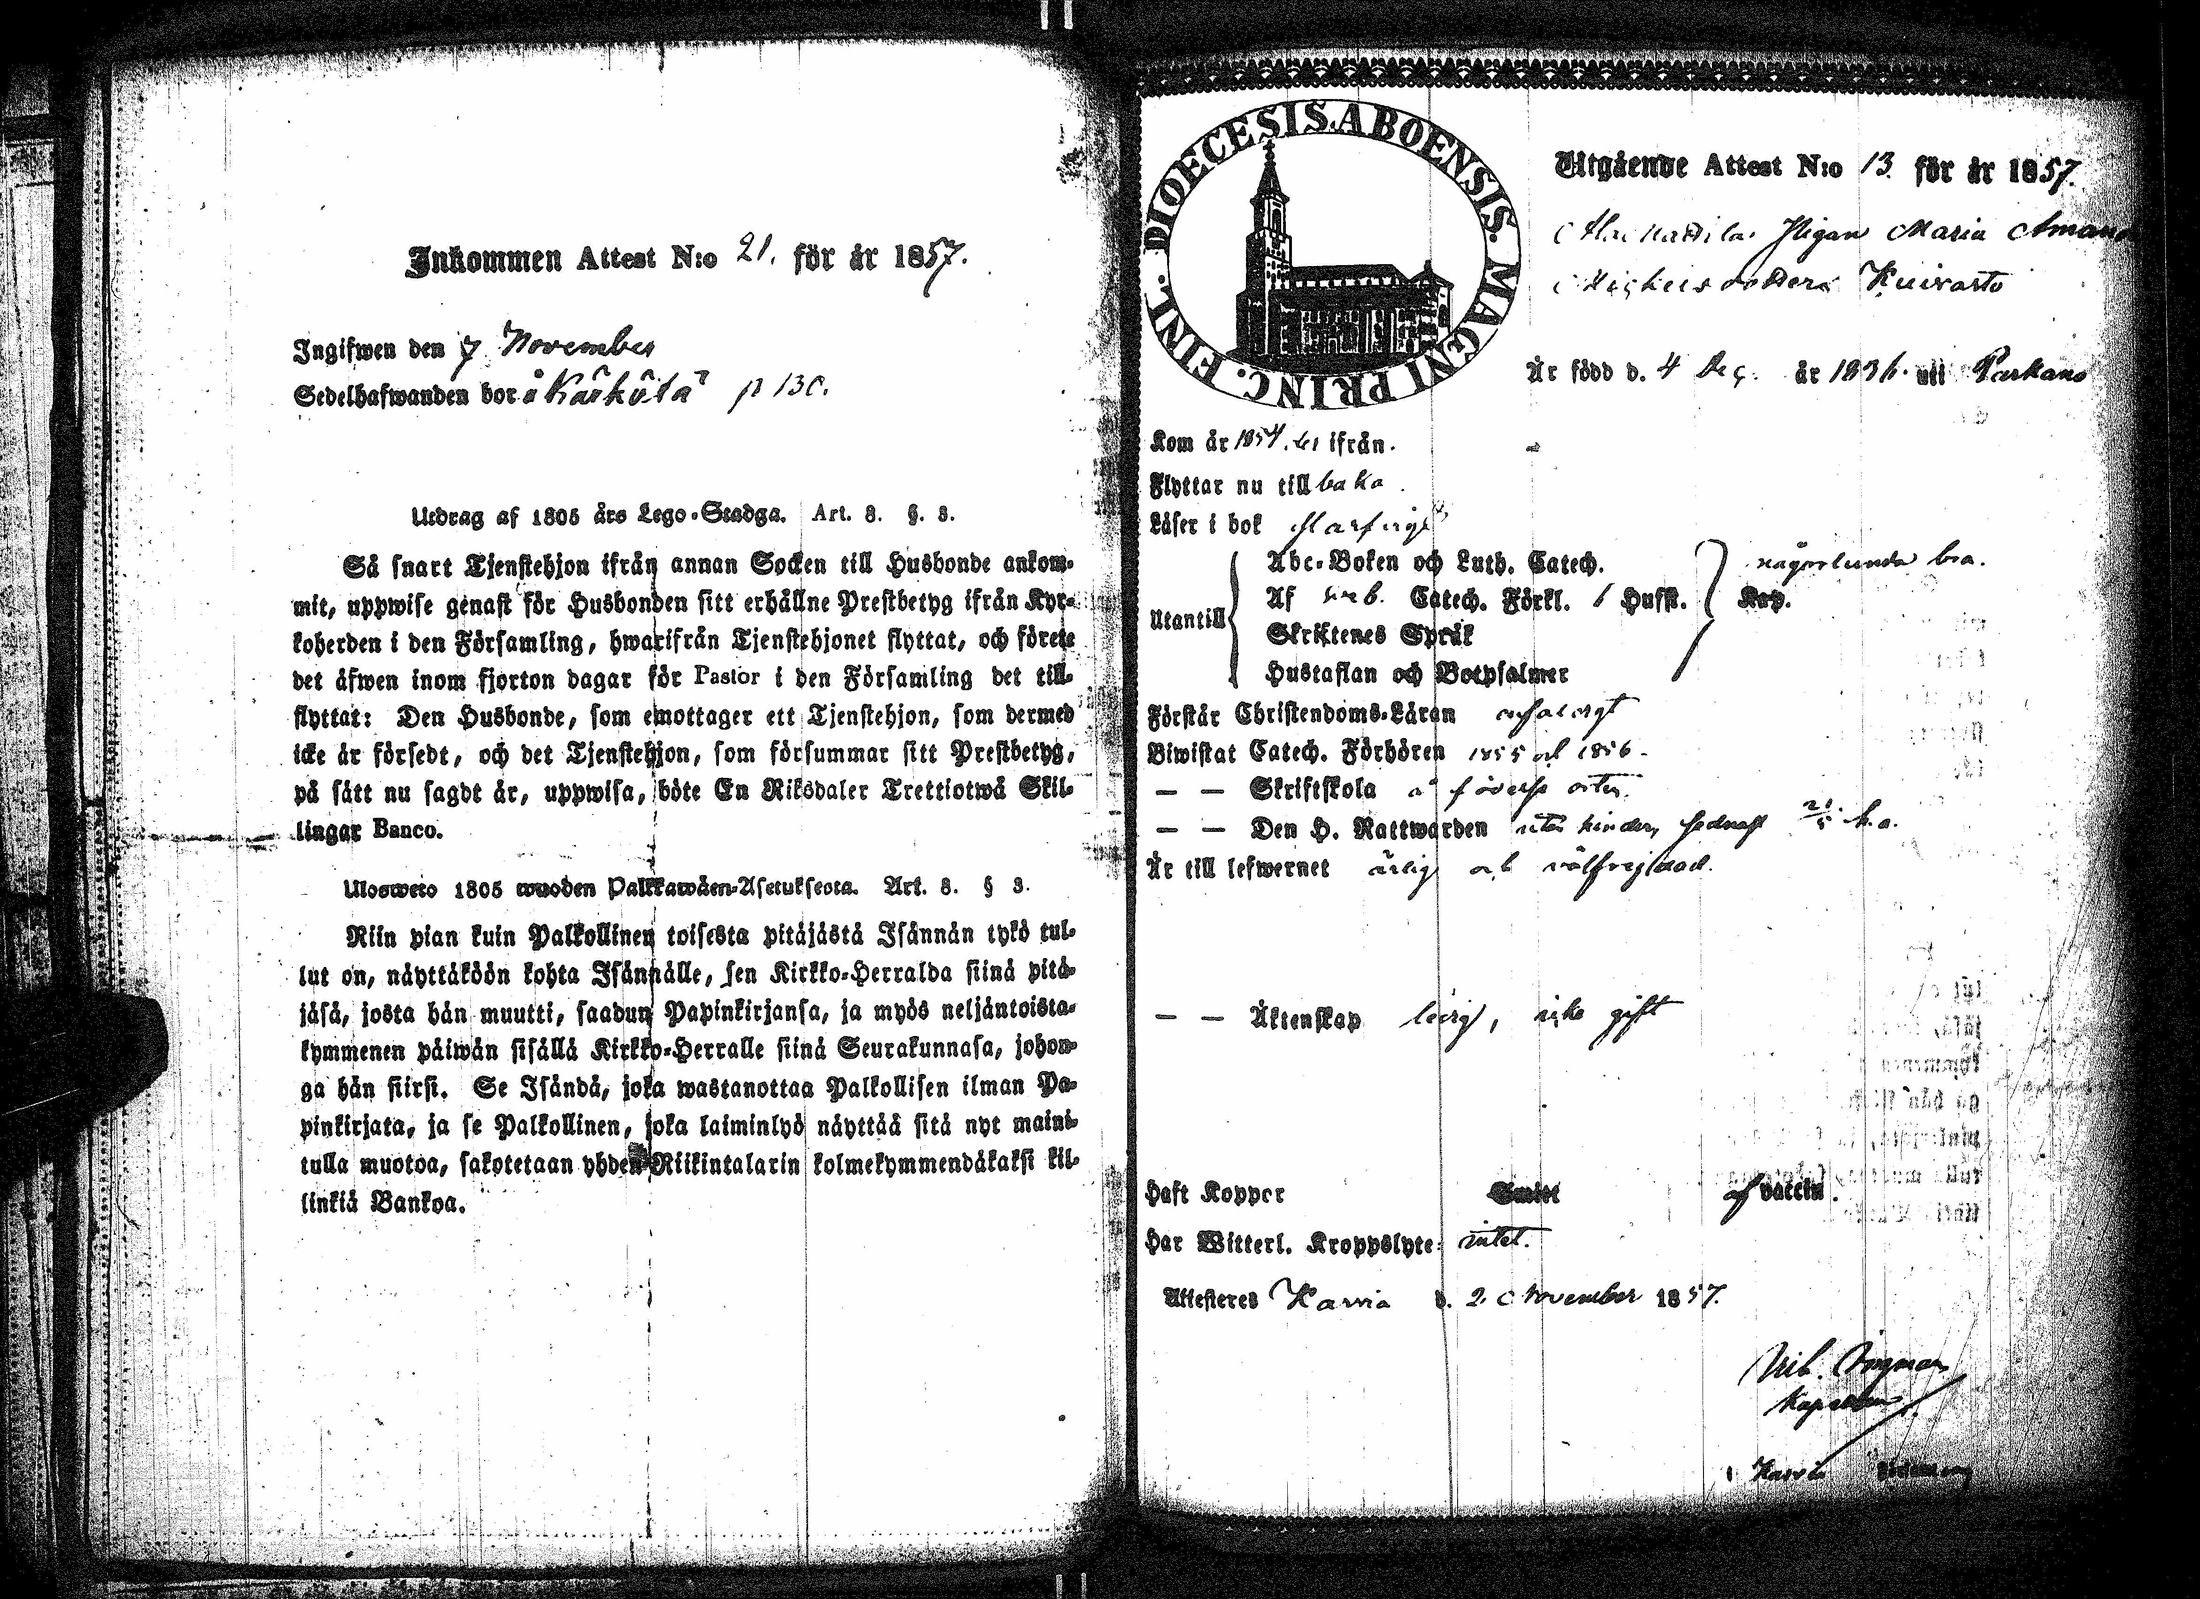 Inkommen Attest N:o 21. för år 1857.
Ingifwen den 7 November
Sedelhafwanden bor å Käikölä p 130.
Utdrag af 1805 års Lego-Stadga. Art. 8. §. 3.
Så snart Tjenstehjon ifrån annan Socken till Husbonde ankom-
mit, uppwise genast för Husbonden sitt erhållne Prestbetyg ifrån Kyr-
koherden i den Församling, hwarifrån Tjenstehjonet flyttat, och förete
det äfwen inom fjorton dagar för Pastor i den Församling det till-
flyttat: Den Husbonde, som emottager ett Tjenstehjon, som dermed
icke är försedt, och det Tjenstehjon, som försummar sitt Prestbetyg,
på sätt nu sagdt är, uppwisa, böte En Riksdaler Trettiotwå Skil-
lingar Banco.
Ulosweto 1805 wuoden Palkkawäen-Asetuksesta. Art. 8. § 3.
Niin pian kuin Palkollinen toisesta pitäjästä Isännän tykö tul-
lut on, näyttäköön kohta Isännälle, sen Kirkko-Herralda siinä pitä-
jäsä, josta hän muutti, saadun Papinkirjansa, ja myös neljäntoista-
kymmenen päiwän sisällä Kirkko-Herralle siinä Seurakunnasa, johon-
ga hän siirsi. Se Isändä, joka wastanottaa Palkollisen ilman Pa-
pinkirjata, ja se Palkollinen, joka laiminlyö näyttää sitä nyt maini-
tulla muotoa, sakotetaan yhden Riikintalarin kolmekymmendäkaksi kil-
linkiä Bankoa.
DIOECESIS. ABOENSIS. MAGNI PRINC. FINL.
Utgående Attest N:o 13 för år 1857.
Pigan Maria Amanda
Kuivasto
Är född d. 4 Dec. år 1836. uti Parkano
Kom år 1854 ifrån.
Flyttar nu tillbaka.
Läser i bok
Utantill
Abc-Boken och Luth. Catech.
Af Catech. Förkl. Husst.
Skriftenes Språk
Hustaflan och Botpsalmer
någorlunda bra.
Kap.
Förstår Christendoms-Läran
Biwistat Catech. Förhören 1855 och 1856.
— — Skriftskola å orter.
— — Den H. Nattwarden utan hinder, sednast 21/5 h.a.
Är till lefwernet ärlig och välfrejdad.
— — Äktenskap ledig, icke gift
Haft Koppor af vaccin.
Har Witterl. Kroppslyte: intet.
Attesteres Karvia d. 2 November 1857.
Ingman
Kapellan
i Karvia